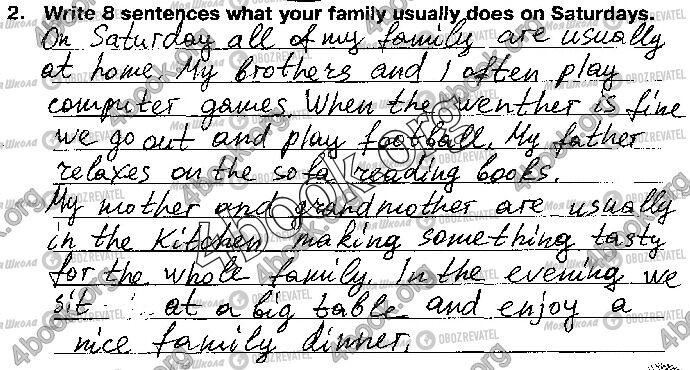 2. Write 8 sentences what your family usually does on Saturdays.
On Saturday all of my family are usually
at home. My brothers and I often play
computer games. When the wenther is fine
we go out and play football. My father
relaxes on the sofa reading books.
My mother and grandmother are usually
in the kitchen making something tasty
for the whole family. In the evening we
sit at a big table and enjoy a
nice family dinner.